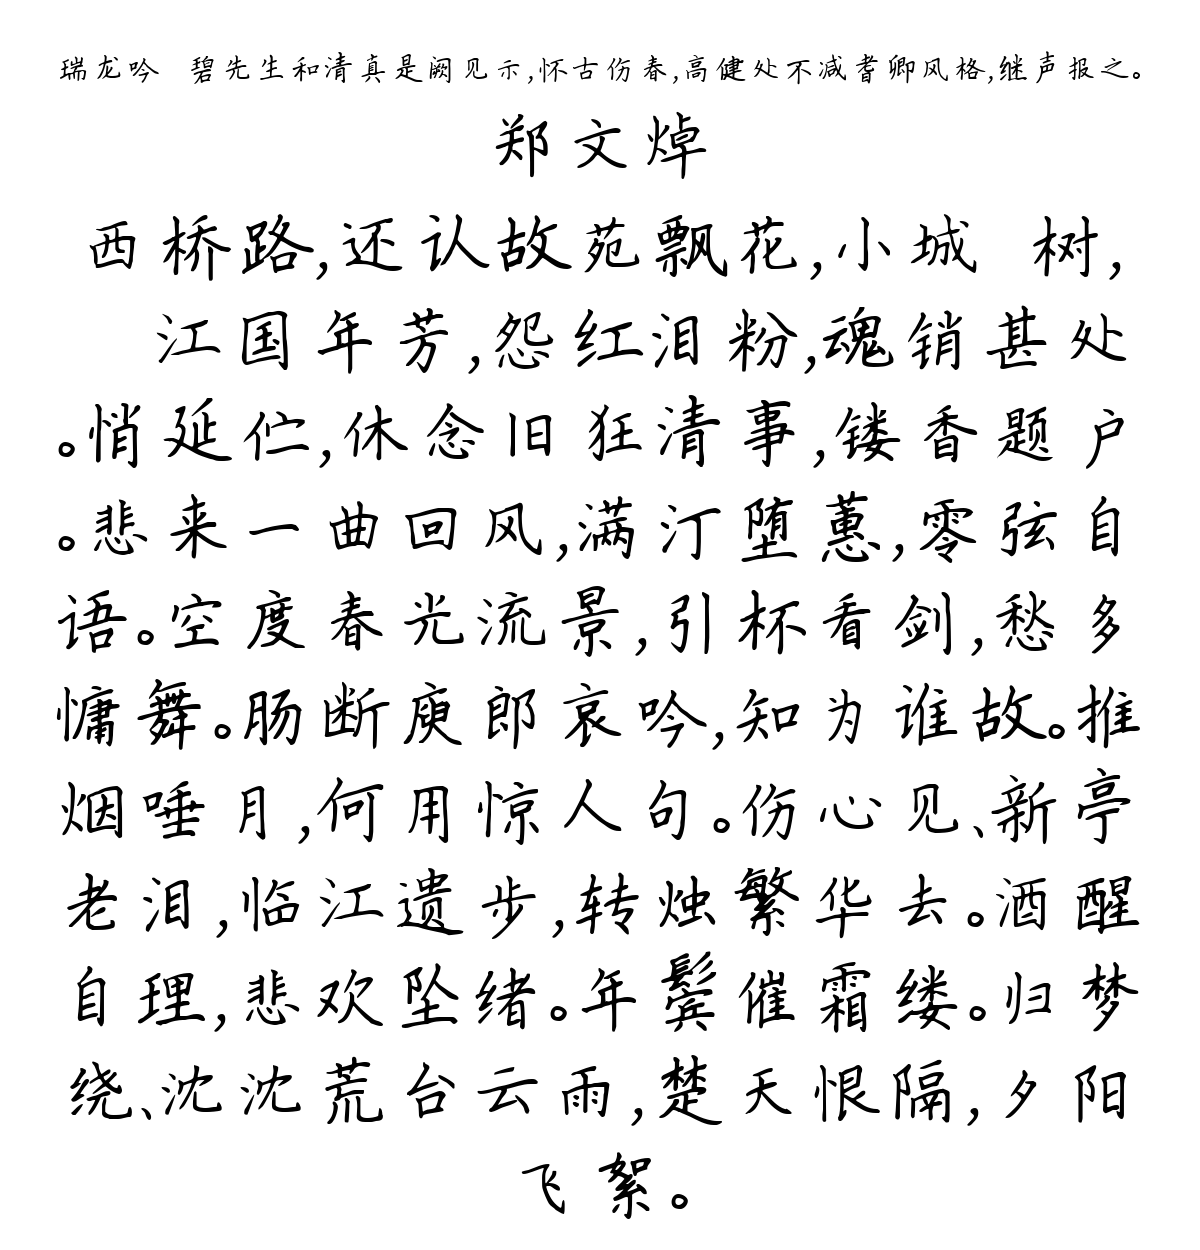 瑞龙吟　碧先生和清真是阙见示,怀古伤春,高健处不减耆卿风格,继声报之。
郑文焯
西桥路,还认故苑飘花,小城　树,
江国年芳,怨红泪粉,魂销甚处
。悄延伫,休念旧狂清事,镂香题户
。悲来一曲回风,满汀堕蕙,零弦自
语。空度春光流景,引杯看剑,愁多
慵舞。肠断庾郎哀吟,知为谁故。推
烟唾月,何用惊人句。伤心见、新亭
老泪,临江遗步,转烛繁华去。酒醒
自理,悲欢坠绪。年鬓催霜缕。归梦
绕、沈沈荒台云雨,楚天恨隔,夕阳
飞絮。